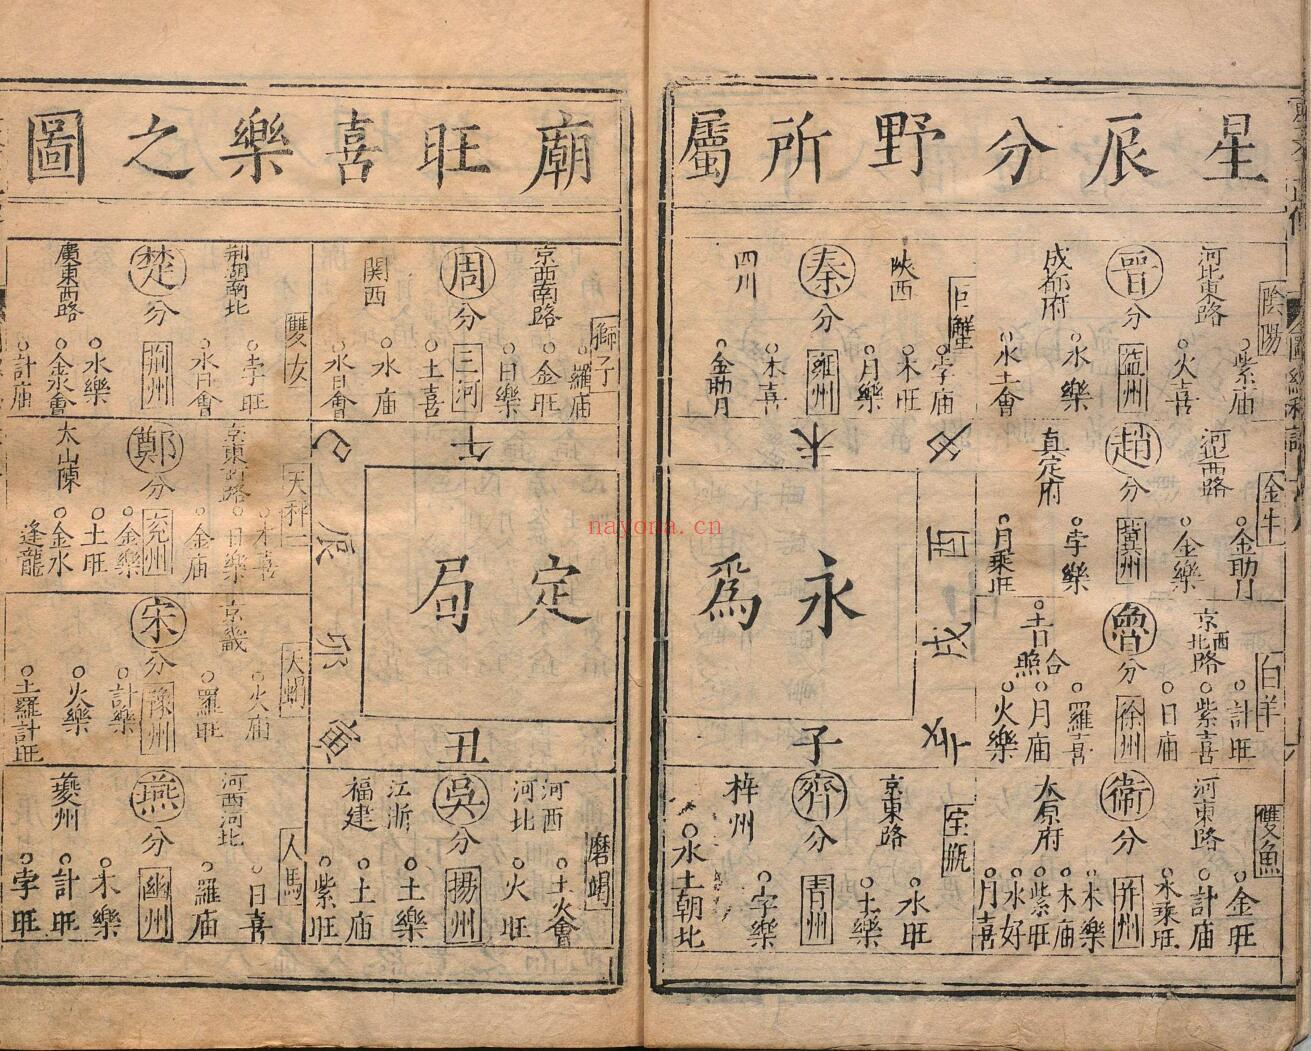 星辰分野所屬
廟旺喜樂之圖
永為
定局
陰陽
河北東路
晉分
益州
成都府
紫庙
火喜
水樂
水土會
金牛
河西路
趙分
冀州
真定府
金助月
金樂
孛樂
月乗旺
白羊
京西北路
魯分
徐州
計旺
紫喜
日庙
羅喜
月庙
火樂
雙魚
河東路
衞分
并州
太原府
金旺
計庙
木乗旺
木樂
木庙
紫旺
水好
月喜
巨蟹
陜西
秦分
雍州
四川
孛庙
木旺
月樂
木喜
金助月
宝瓶
京東路
齊分
青州
水旺
土樂
字樂
水土朝北
未
申
酉
戌
亥
子
獅子
京西南路
周分
三河
関西
羅庙
金旺
日樂
土喜
水庙
水日會
雙女
荆湖南北
楚分
荆州
廣東西路
孛旺
水日會
水樂
金水會
計庙
天秤
鄭分
兖州
木喜
日樂
金庙
金樂
土旺
金水
逢龍
天蝎
京畿
宋分
豫州
火庙
羅旺
計樂
火樂
土羅計旺
人馬
河西河北
燕分
幽州
夔州
日喜
羅庙
木樂
計旺
孛旺
磨竭
河西
河北
吳分
揚州
江浙
福建
土火會
火旺
土樂
土庙
紫旺
午
巳
辰
卯
寅
丑
nayona.cn